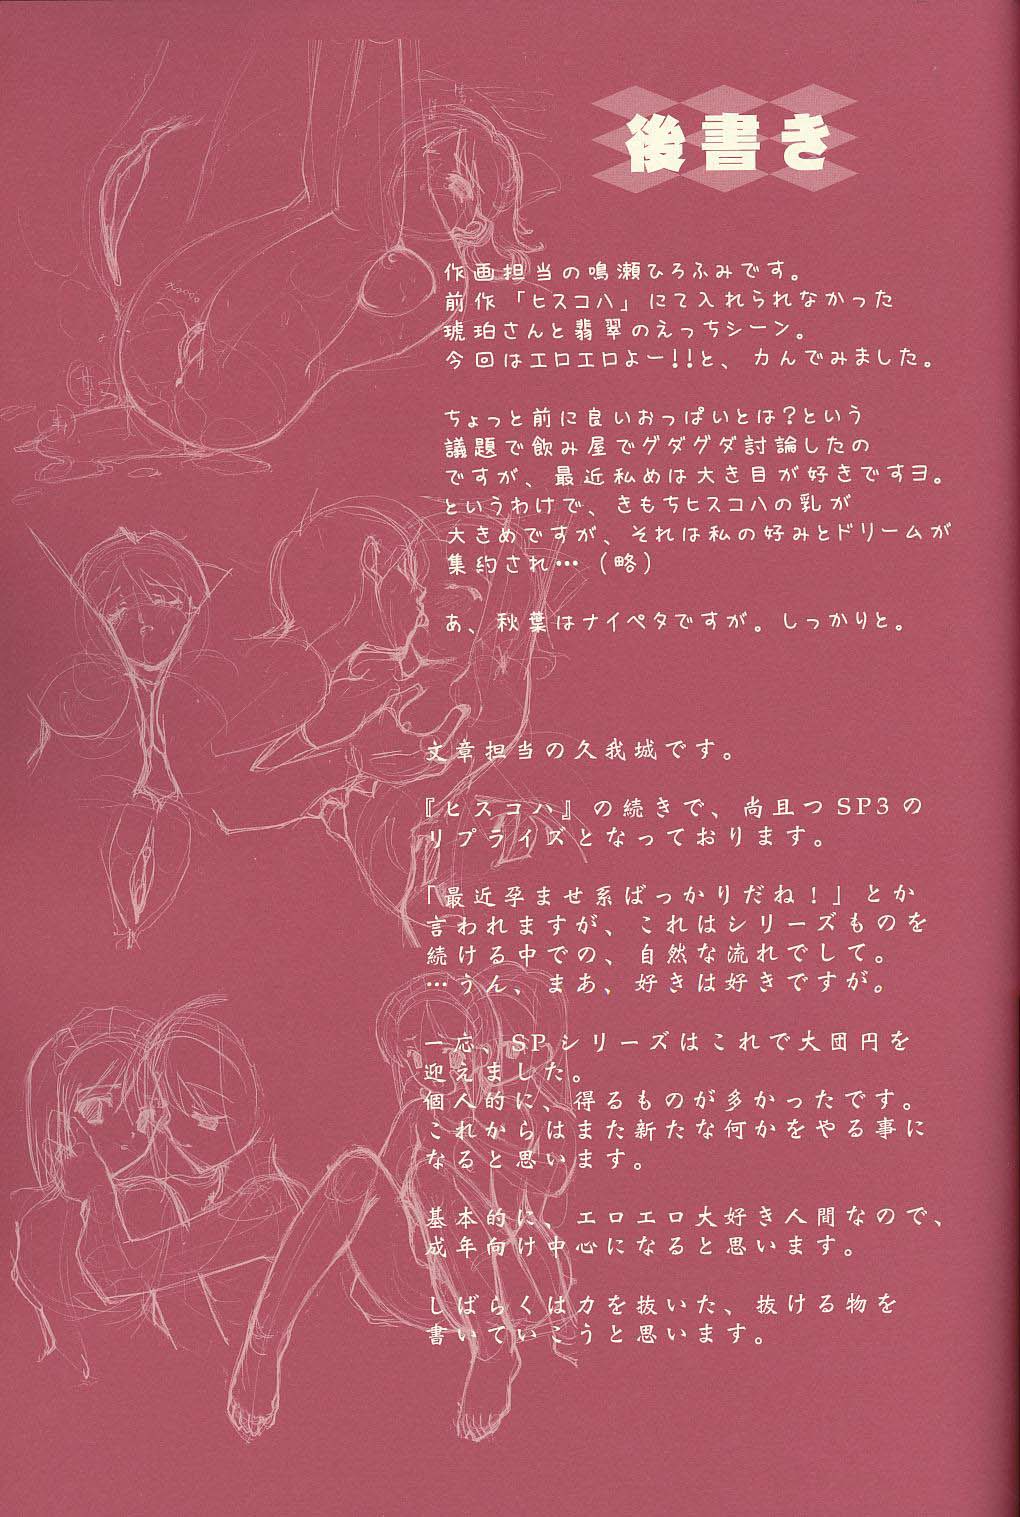 後書き
作画担当の鳴瀬ひろふみです。
前作「ヒスコハ」にて入れられなかった
琥珀さんと翡翠のえっちシーン。
今回はエロエロよー!!と、カんでみました。
ちょっと前に良いおっぱいとは?という
議題で飲み屋でゲダゲダ討論したの
ですが、最近私めは大き目が好きですヨ。
というわけで、きもちヒスコハの乳が
大きめですが、それは私の好みとドリームが
集約され…(略)
あ、秋葉はナイペタですが。しっかりと。
文章担当の久我城です。
『ヒスコハ』の続きで、尚且つSP3の
リプライズとなっております。
「最近孕ませ系ばっかりだね!」とか
言われますが、これはシリーズものを
続ける中での、自然な流れでして。
…うん、まあ、好きは好きですが。
一応、SPシリーズはこれで大団円を
迎えました。
個人的に、得るものが多かったです。
これからはまた新たな何かをやる事に
なると思います。
基本的に、エロエロ大好き人間なので、
成年向け中心になると思います。
しばらくは力を抜いた、抜ける物を
書いていこうと思います。